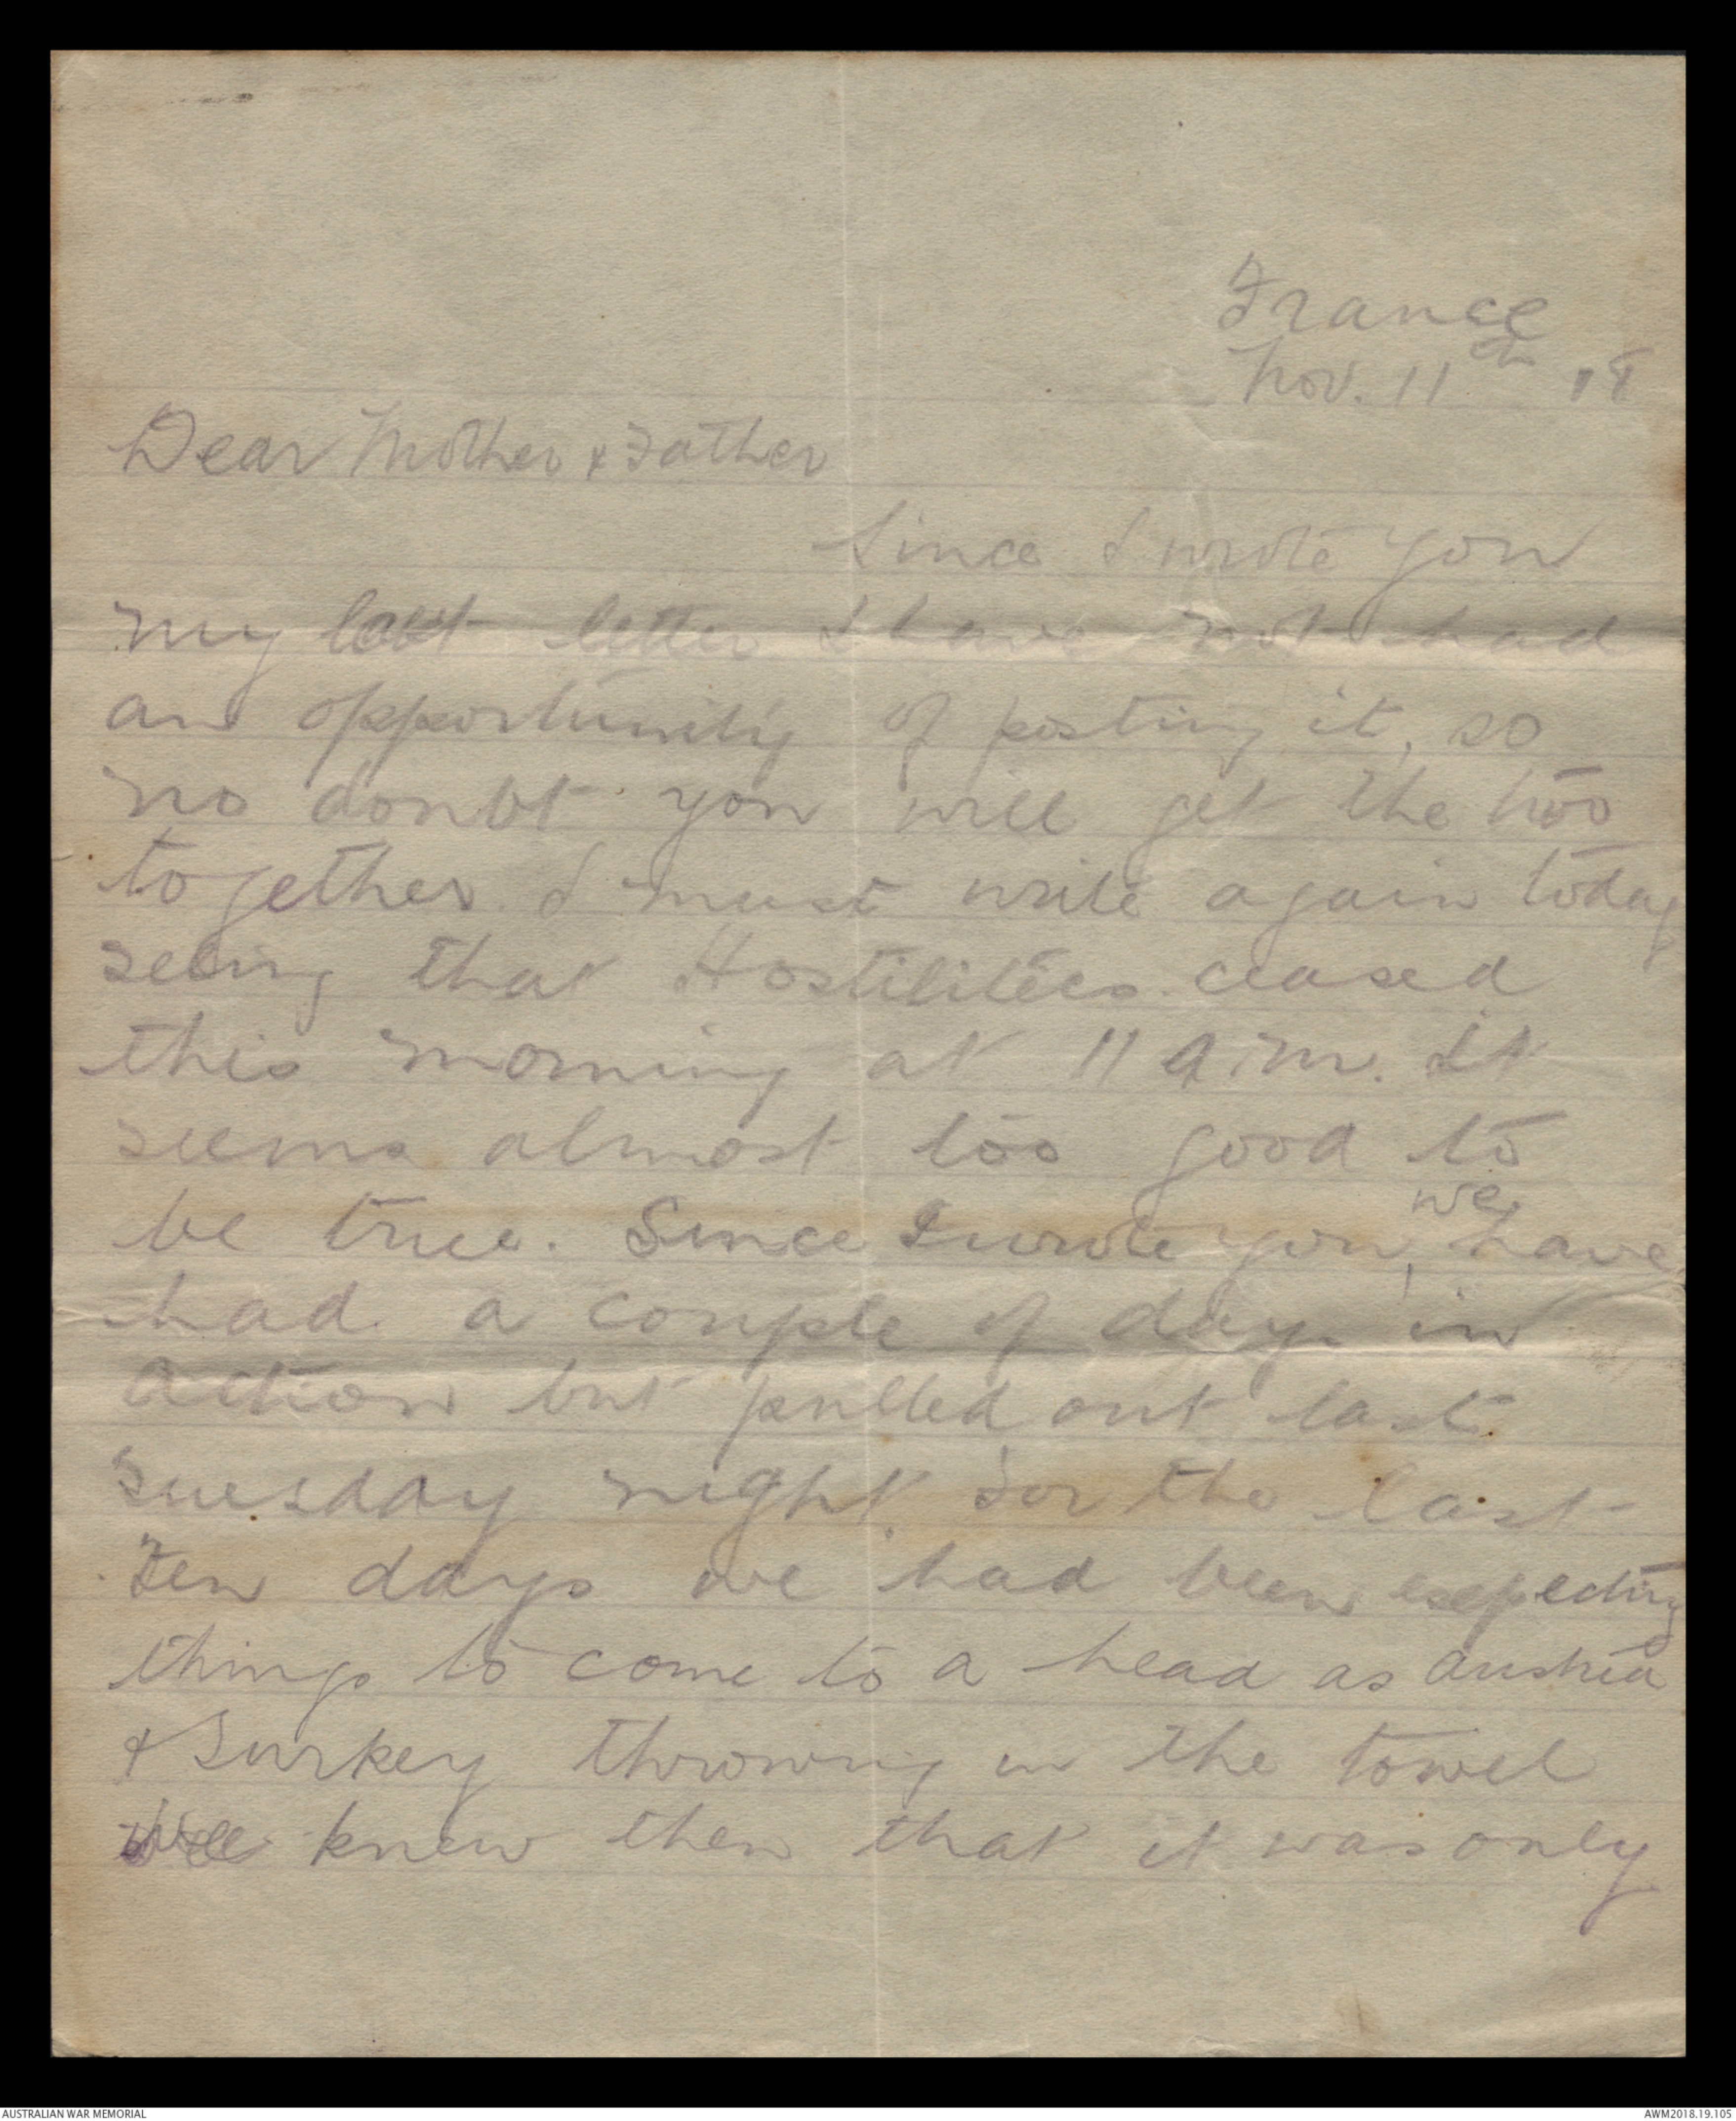 France
Nov. 11th 18
Dear Mother & Father
Since I wrote you
my last letter I have not had
an opportunity of posting it, so
no doubt you will get the two
together. I must write again today
seeing that Hostilities ceased
this morning at 11 a.m. It
seems almost too good to
be true. Since I wrote you, we have
had a couple of days in
action but pulled out last
Tuesday night. For the last
ten days we had been expecting
things to come to a head as Austria
& Turkey throwing in the towel
We knew then that it was only
AUSTRALIAN WAR MEMORIAL
AWM2018.19.105